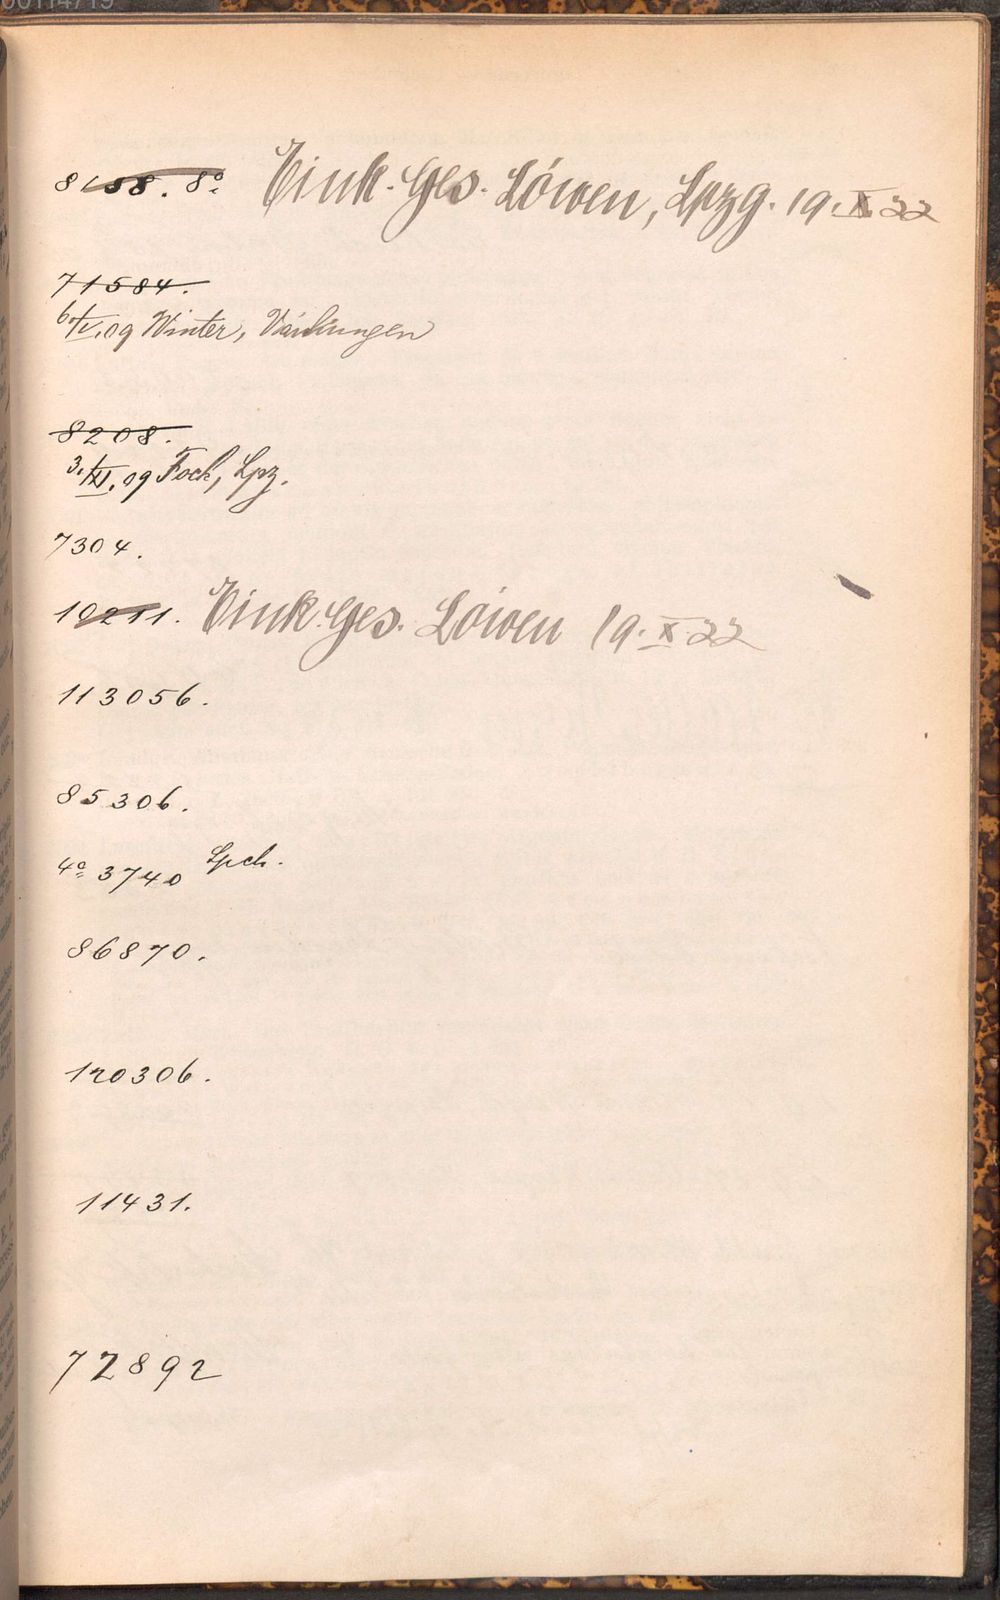 00114719
8158. 8° Eink. Ges. Löwen, Lpzg. 19.X.22
71584.
6./V.09 Winter,
8208.
3./XI.09 Fock, Lpz.
7304.
10211. Eink. Ges. Löwen 19.X.22
113056.
85306.
4° 3740 Spch.
86870.
120306.
11431.
72892